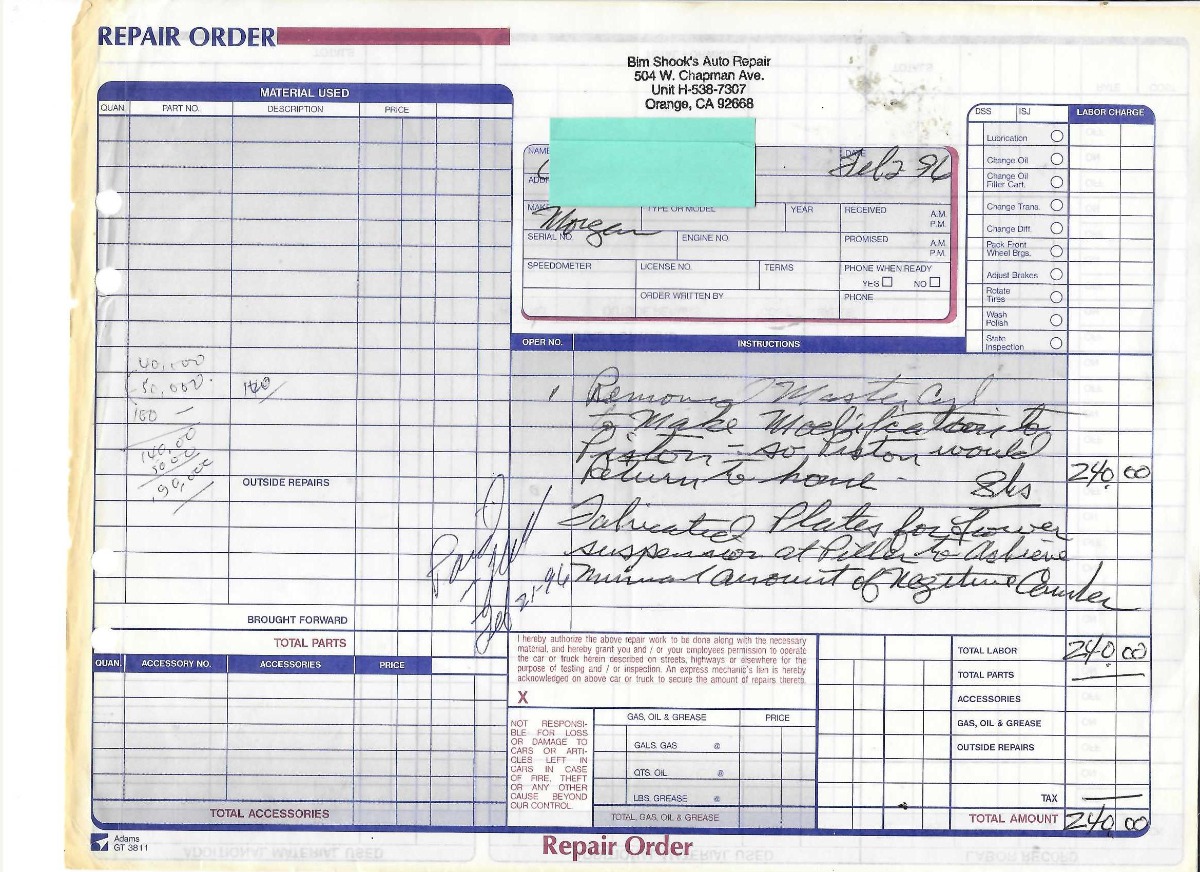 REPAIR ORDER
Bim Shook's Auto Repair
504 W. Chapman Ave.
Unit H-538-7307
Orange, CA 92668
MATERIAL USED
QUAN. PART NO. DESCRIPTION PRICE
DSS ISJ LABOR CHARGE
Lubrication
Change Oil
Change Oil
Filter Cart.
Change Trans.
Change Diff.
Pack Front
Wheel Brgs.
Adjust Brakes
Rotate
Tires
Wash
Polish
State
Inspection
NAME DATE
Feb 2 96
ADD
MAKE TYPE OR MODEL YEAR RECEIVED A.M.
P.M.
Morgan
SERIAL NO. ENGINE NO. PROMISED A.M.
P.M.
SPEEDOMETER LICENSE NO. TERMS PHONE WHEN READY
YES NO
ORDER WRITTEN BY PHONE
OPER NO. INSTRUCTIONS
40,000
50,000
100
140,00
50,00
190,00
140
1 Removed Master Cyl
to Make Modification to
Piston - so Piston would
return to home - 8hs 240.00
Fabricated Plates for Lower
suspension at Piller to Achieve
Minimal amount of Negitive Camber
Paid
Feb 21-96
OUTSIDE REPAIRS
BROUGHT FORWARD
TOTAL PARTS
QUAN. ACCESSORY NO. ACCESSORIES PRICE
TOTAL ACCESSORIES
I hereby authorize the above repair work to be done along with the necessary
material, and hereby grant you and / or your employees permission to operate
the car or truck herein described on streets, highways or elsewhere for the
purpose of testing and / or inspection. An express mechanic's lien is hereby
acknowledged on above car or truck to secure the amount of repairs thereto.
X
NOT RESPONSI-
BLE FOR LOSS
OR DAMAGE TO
CARS OR ARTI-
CLES LEFT IN
CARS IN CASE
OF FIRE, THEFT
OR ANY OTHER
CAUSE BEYOND
OUR CONTROL.
GAS, OIL & GREASE PRICE
GALS. GAS @
QTS. OIL @
LBS. GREASE @
TOTAL, GAS, OIL & GREASE
TOTAL LABOR 240.00
TOTAL PARTS
ACCESSORIES
GAS, OIL & GREASE
OUTSIDE REPAIRS
TAX
TOTAL AMOUNT 240.00
Adams
GT 3811
Repair Order